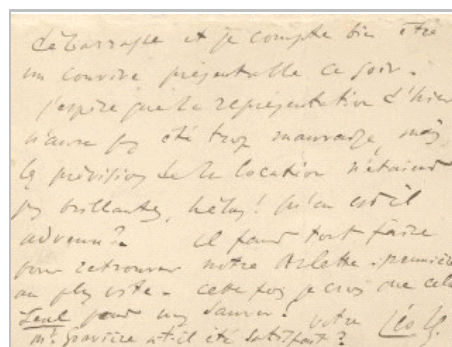 débarrassé et je compte bien être
un convive présentable ce soir.
j'espère que la représentation d'hier
n'aura pas été trop mauvaise, mais
les prévisions de la location n'étaient
pas brillantes, hélas ! qu'en est-il
advenu ? il faut tout faire
pour retrouver notre Arlette première
au plus vite - cette fois je crois que cela
Seul peut nous sauver. votre Léo
Mr. Gravière a-t-il été satisfait ?